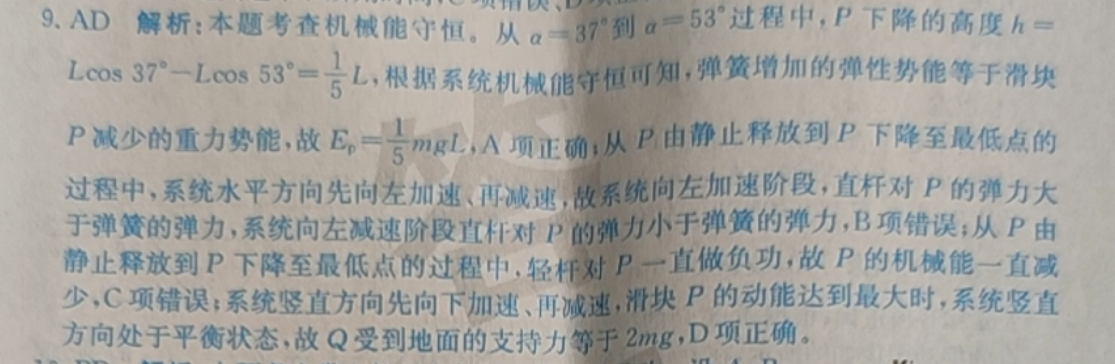 9. AD 解析:本题考查机械能守恒。从 α=37°到 α=53°过程中,P 下降的高度 h=
Lcos 37°-Lcos 53°=1/5L,根据系统机械能守恒可知,弹簧增加的弹性势能等于滑块
P 减少的重力势能,故 Eₚ=1/5mgL,A 项正确;从 P 由静止释放到 P 下降至最低点的
过程中,系统水平方向先向左加速、再减速,故系统向左加速阶段,直杆对 P 的弹力大
于弹簧的弹力,系统向左减速阶段直杆对 P 的弹力小于弹簧的弹力,B项错误;从 P 由
静止释放到 P 下降至最低点的过程中,轻杆对 P 一直做负功,故 P 的机械能一直减
少,C 项错误;系统竖直方向先向下加速、再减速,滑块 P 的动能达到最大时,系统竖直
方向处于平衡状态,故 Q 受到地面的支持力等于 2mg,D 项正确。